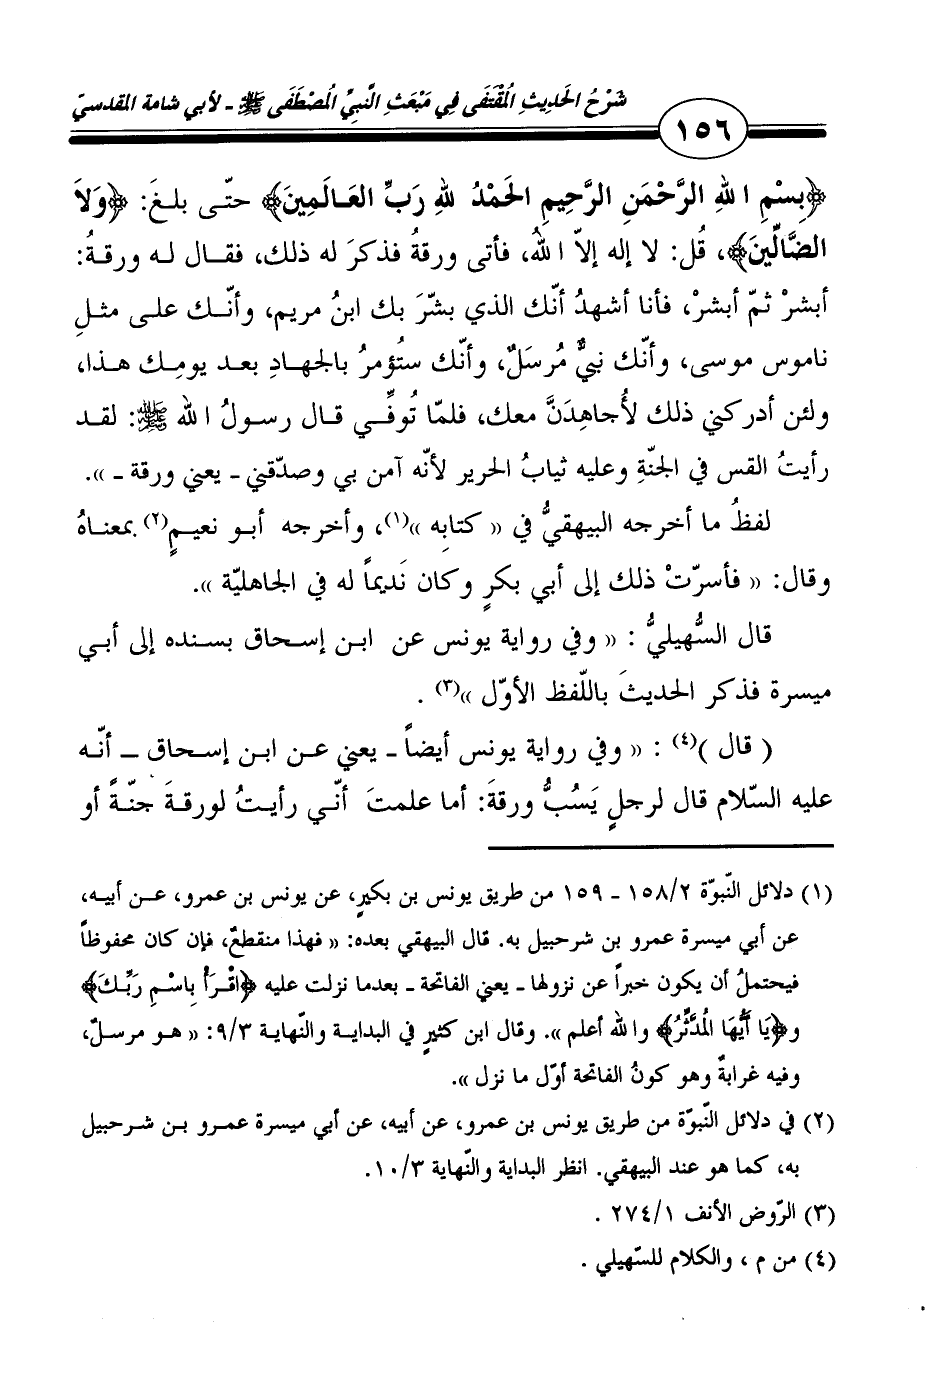 شَرْحُ الحَديثِ المُقْتَفَى فِي مَبْعَثِ النَّبِيِّ المُصْطَفَى ﷺ - لأبي شامة المقدسيّ
١٥٦
﴿بِسْمِ اللهِ الرَّحْمَنِ الرَّحِيمِ الحَمْدُ للهِ رَبِّ العَالَمِينَ﴾ حتّى بلغَ: ﴿وَلاَ
الضَّالِّينَ﴾، قُل: لا إله إلاّ اللهُ، فأتى ورقةُ فذكرَ له ذلك، فقال له ورقةُ:
أبشرْ ثمّ أبشرْ، فأنا أشهدُ أنّك الذي بشّرَ بك ابنُ مريم، وأنّك على مثلِ
ناموس موسى، وأنّك نبيٌّ مُرسَلٌ، وأنّك ستُؤمرُ بالجهادِ بعد يومِك هذا،
ولئن أدركني ذلك لأُجاهِدَنَّ معك، فلمّا تُوفِّي قال رسولُ الله ﷺ: لقد
رأيتُ القس في الجنّةِ وعليه ثيابُ الحرير لأنّه آمن بي وصدّقني - يعني ورقة - ».
لفظُ ما أخرجه البيهقيُّ في « كتابِه »(١)، وأخرجه أبو نعيمٍ(٢) بمعناهُ
وقال: « فأسرّتْ ذلك إلى أبي بكرٍ وكان نَديماً له في الجاهليّة ».
قال السُّهيليُّ : « وفي رواية يونس عن ابن إسحاق بسنده إلى أبي
ميسرة فذكر الحديثَ باللّفظ الأوّل »(٣) .
( قال )(٤) : « وفي رواية يونس أيضاً - يعني عن ابن إسحاق - أنّه
عليه السّلام قال لرجلٍ يَسُبُّ ورقةَ: أما علمتَ أنّي رأيتُ لورقةَ جنّةً أو
(١) دلائل النّبوّة ١٥٨/٢ - ١٥٩ من طريق يونس بن بكيرٍ، عن يونس بن عمرو، عن أبيه،
عن أبي ميسرة عمرو بن شرحبيل به. قال البيهقي بعده: « فهذا منقطعٌ، فإن كان محفوظاً
فيحتملُ أن يكون خبراً عن نزولها - يعني الفاتحة - بعدما نزلت عليه ﴿اقْرَأْ بِاسْمِ رَبِّكَ﴾
و﴿يَا أَيُّهَا المُدَّثِّرُ﴾ والله أعلم ». وقال ابن كثيرٍ في البداية والنّهاية ٩/٣: « هو مرسلٌ،
وفيه غرابةٌ وهو كونُ الفاتحة أوّل ما نزل ».
(٢) في دلائل النّبوّة من طريق يونس بن عمرو، عن أبيه، عن أبي ميسرة عمرو بن شرحبيل
به، كما هو عند البيهقي. انظر البداية والنّهاية ١٠/٣.
(٣) الرّوض الأنف ٢٧٤/١ .
(٤) من م ، والكلام للسّهيلي .